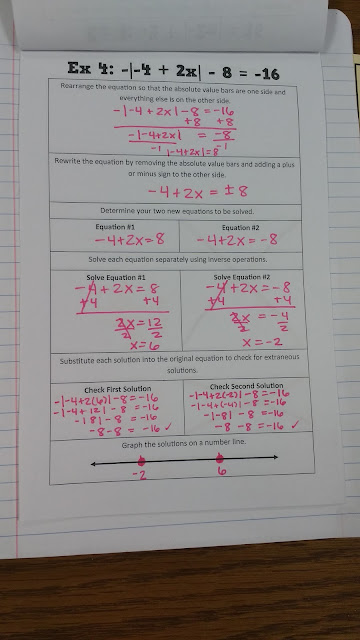 Ex 4: -|-4 + 2x| - 8 = -16
Rearrange the equation so that the absolute value bars are one side and
everything else is on the other side.
-|-4+2x|-8=-16
+8 +8
-|-4+2x| = -8
-1 -1
|-4+2x|=8
Rewrite the equation by removing the absolute value bars and adding a plus
or minus sign to the other side.
-4+2x = ±8
Determine your two new equations to be solved.
Equation #1
-4+2x=8
Equation #2
-4+2x=-8
Solve each equation separately using inverse operations.
Solve Equation #1
-4+2x = 8
+4 +4
2x = 12
2 2
x=6
Solve Equation #2
-4+2x=-8
+4 +4
2x = -4
2 2
x=-2
Substitute each solution into the original equation to check for extraneous
solutions.
Check First Solution
-|-4+2(6)|-8=-16
-|-4+12|-8=-16
-|8|-8=-16
-8-8=-16 ✓
Check Second Solution
-|-4+2(-2)|-8=-16
-|-4+(-4)|-8=-16
-|-8|-8=-16
-8-8=-16 ✓
Graph the solutions on a number line.
-2 6